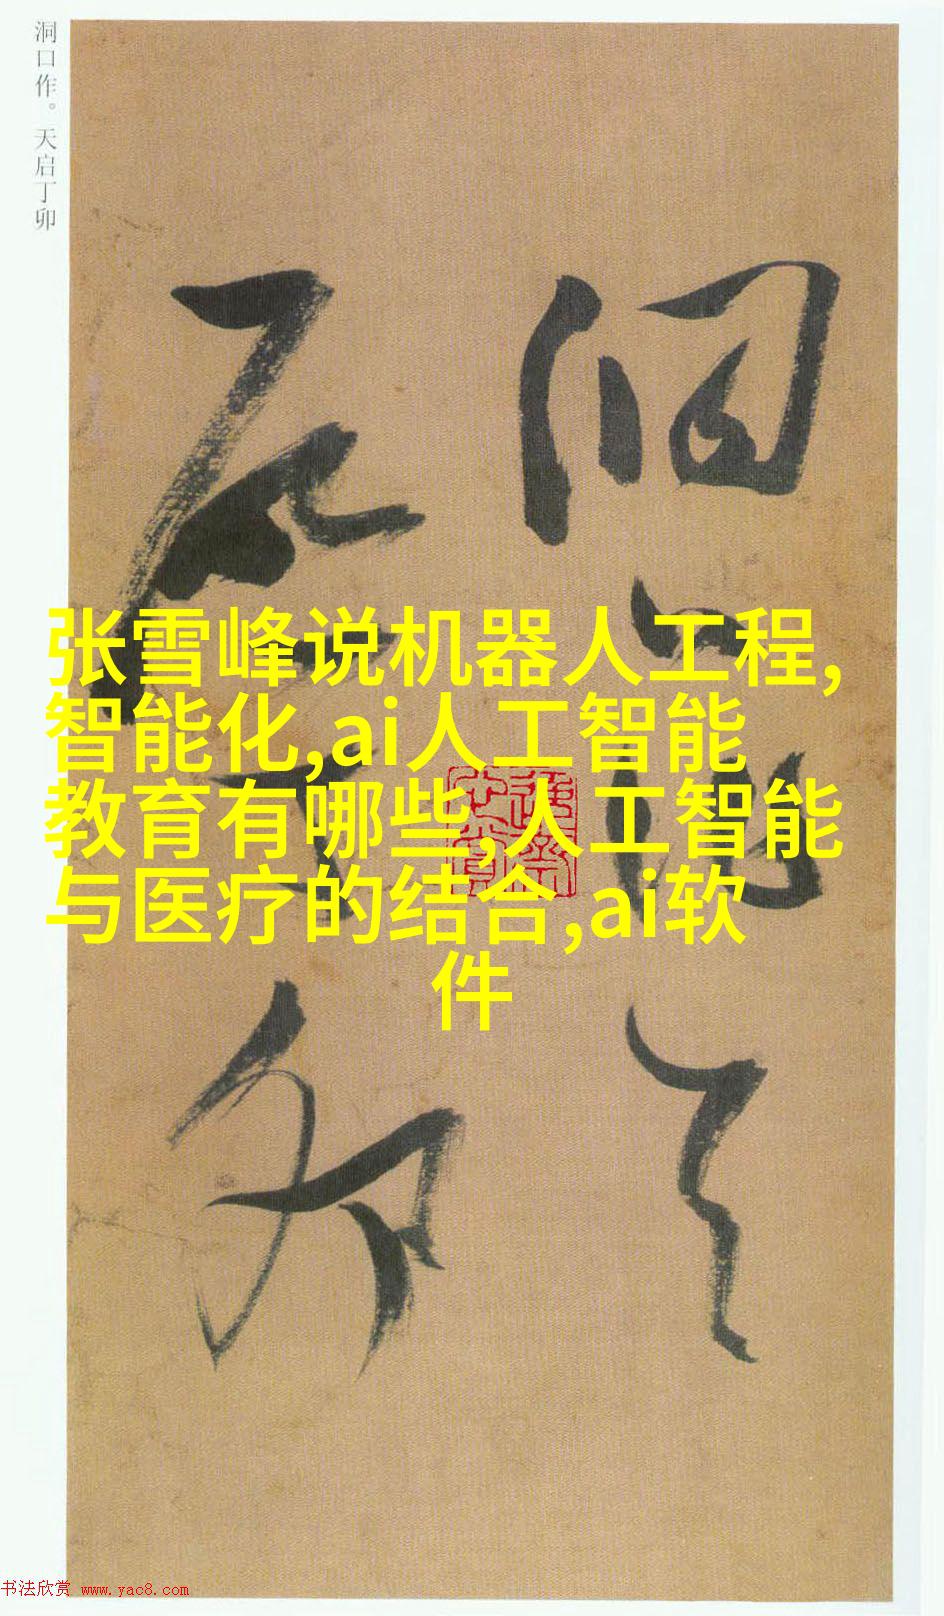 洞口作。天启丁卯
洞口作
天启丁卯
张雪峰说机器人工程,
智能化,ai人工智能
教育有哪些,人工智能
与医疗的结合,ai软
件
书法欣赏 www.yac8.com